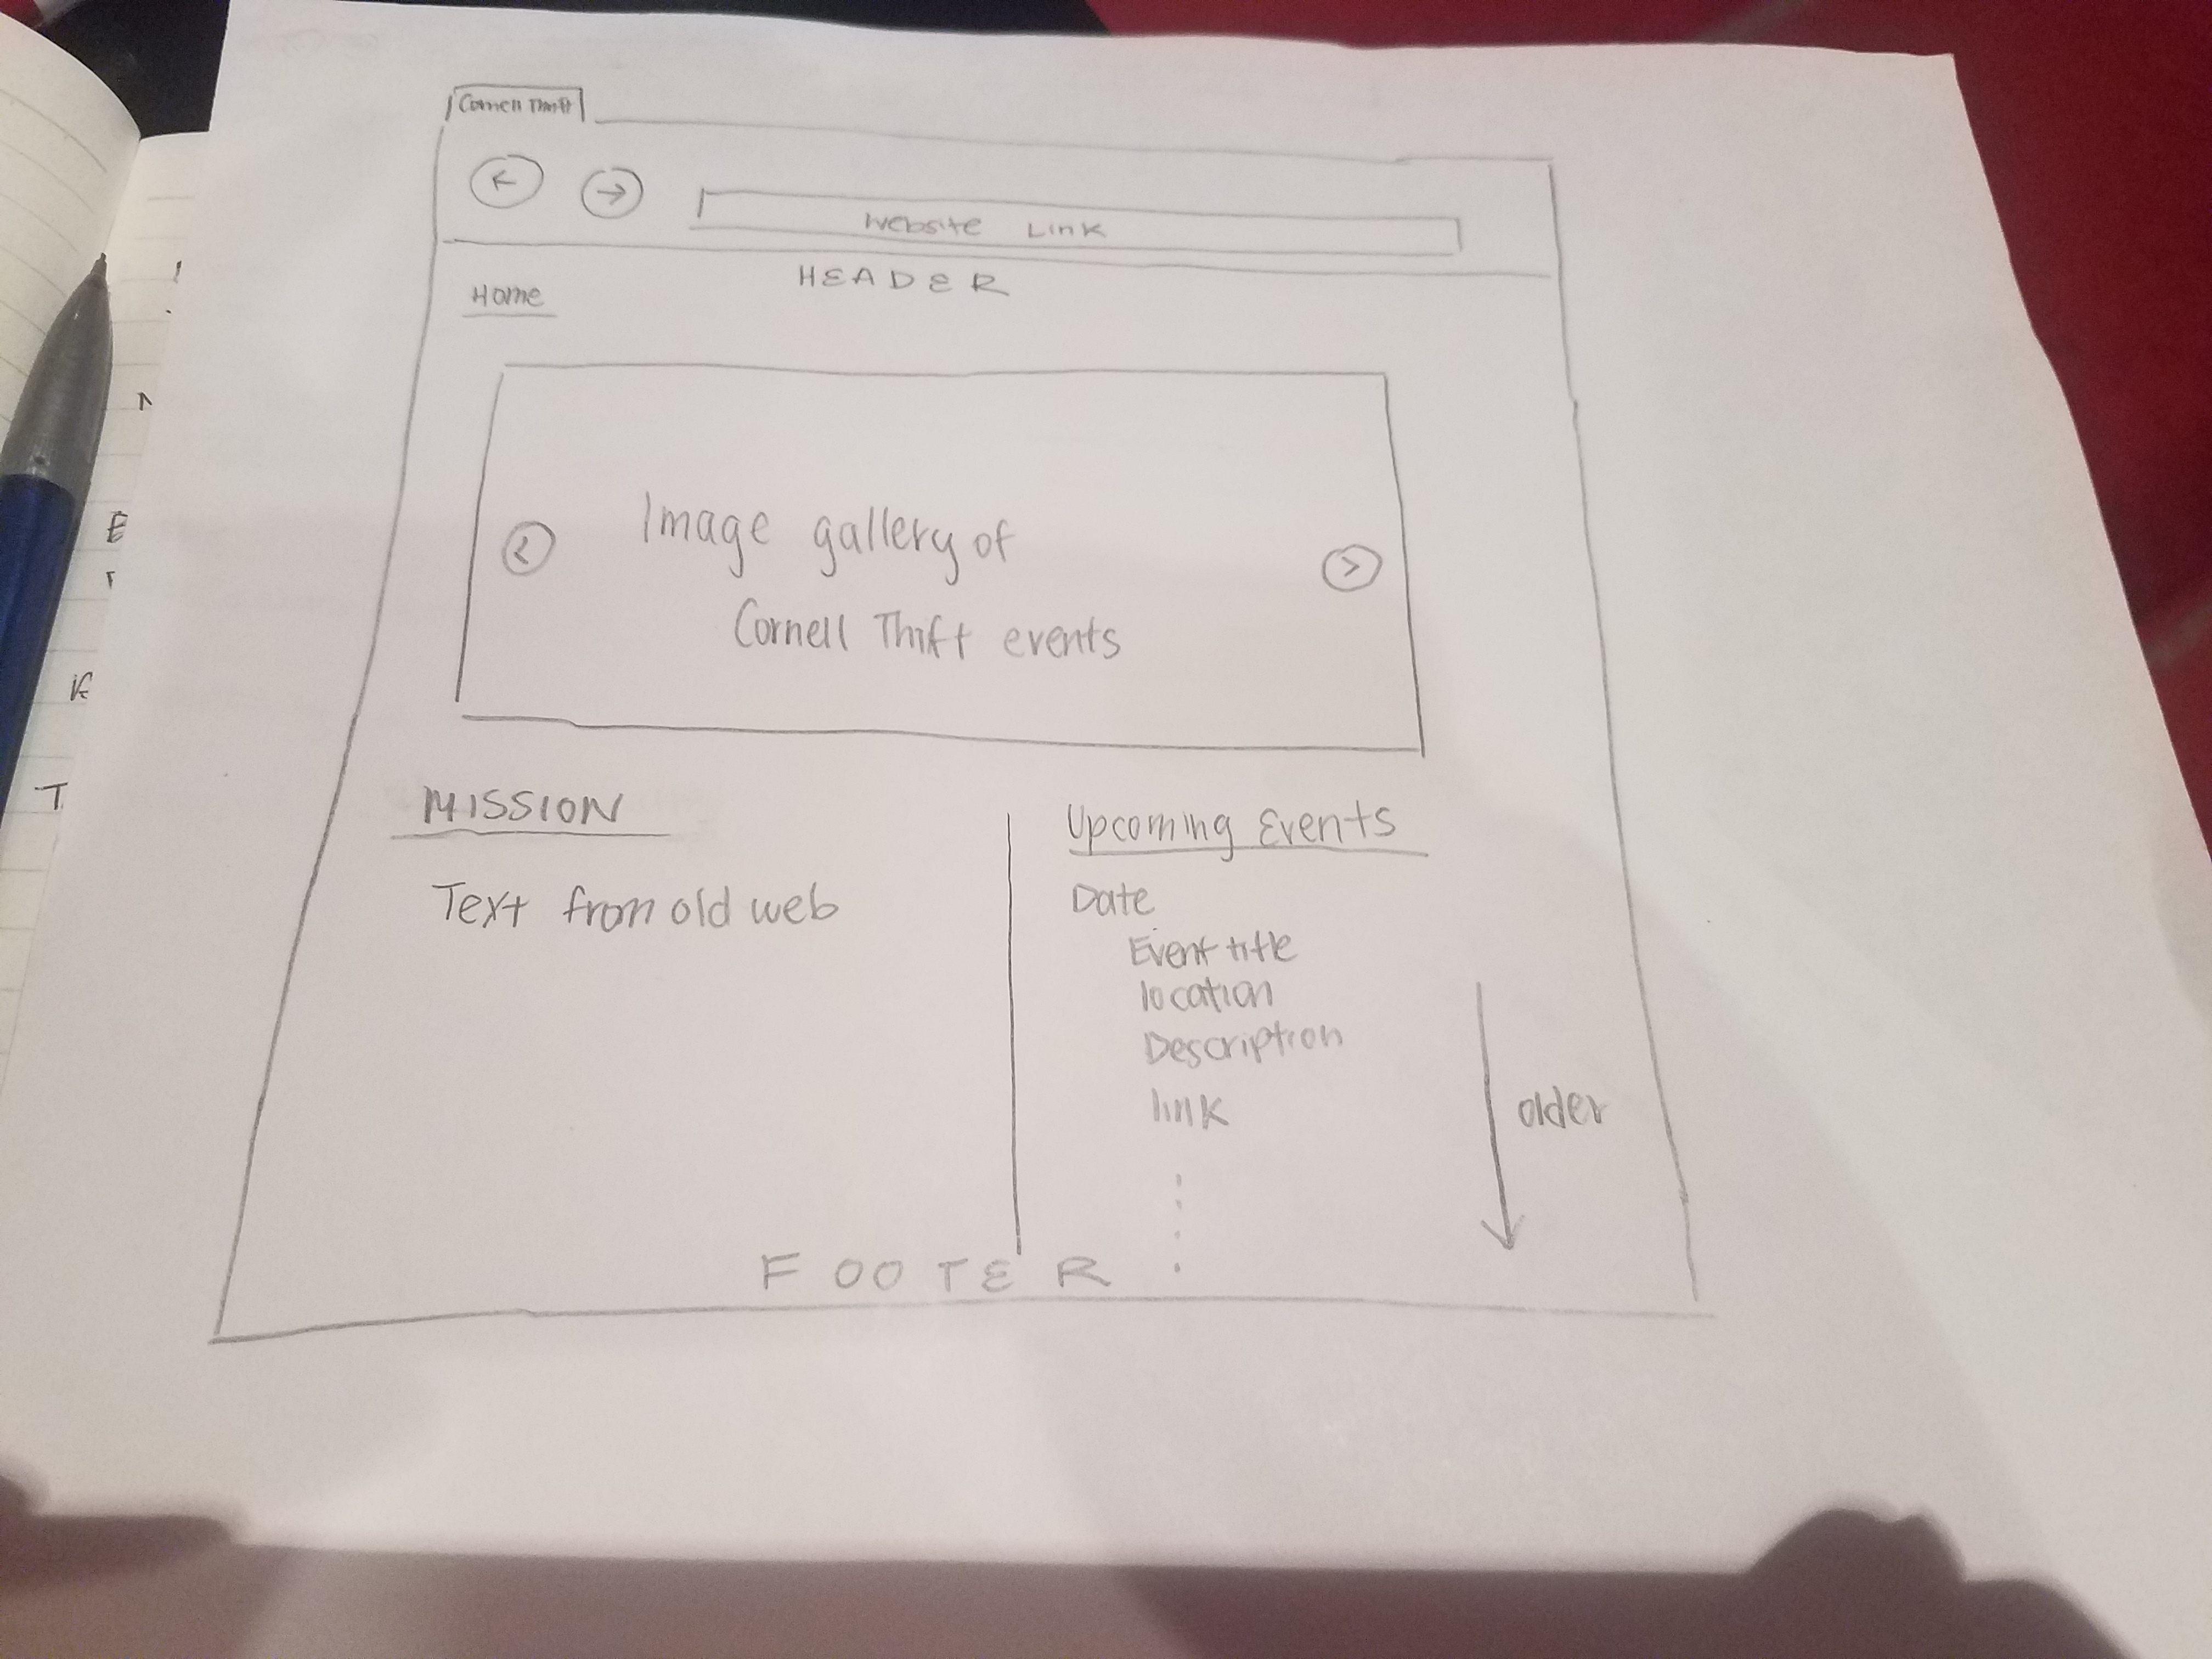 Cornell Thrift
Website Link
HEADER
Home
Image gallery of
Cornell Thrift events
MISSION
Text from old web
Upcoming Events
Date
Event title
location
Description
link
older
FOOTER
E
K
T